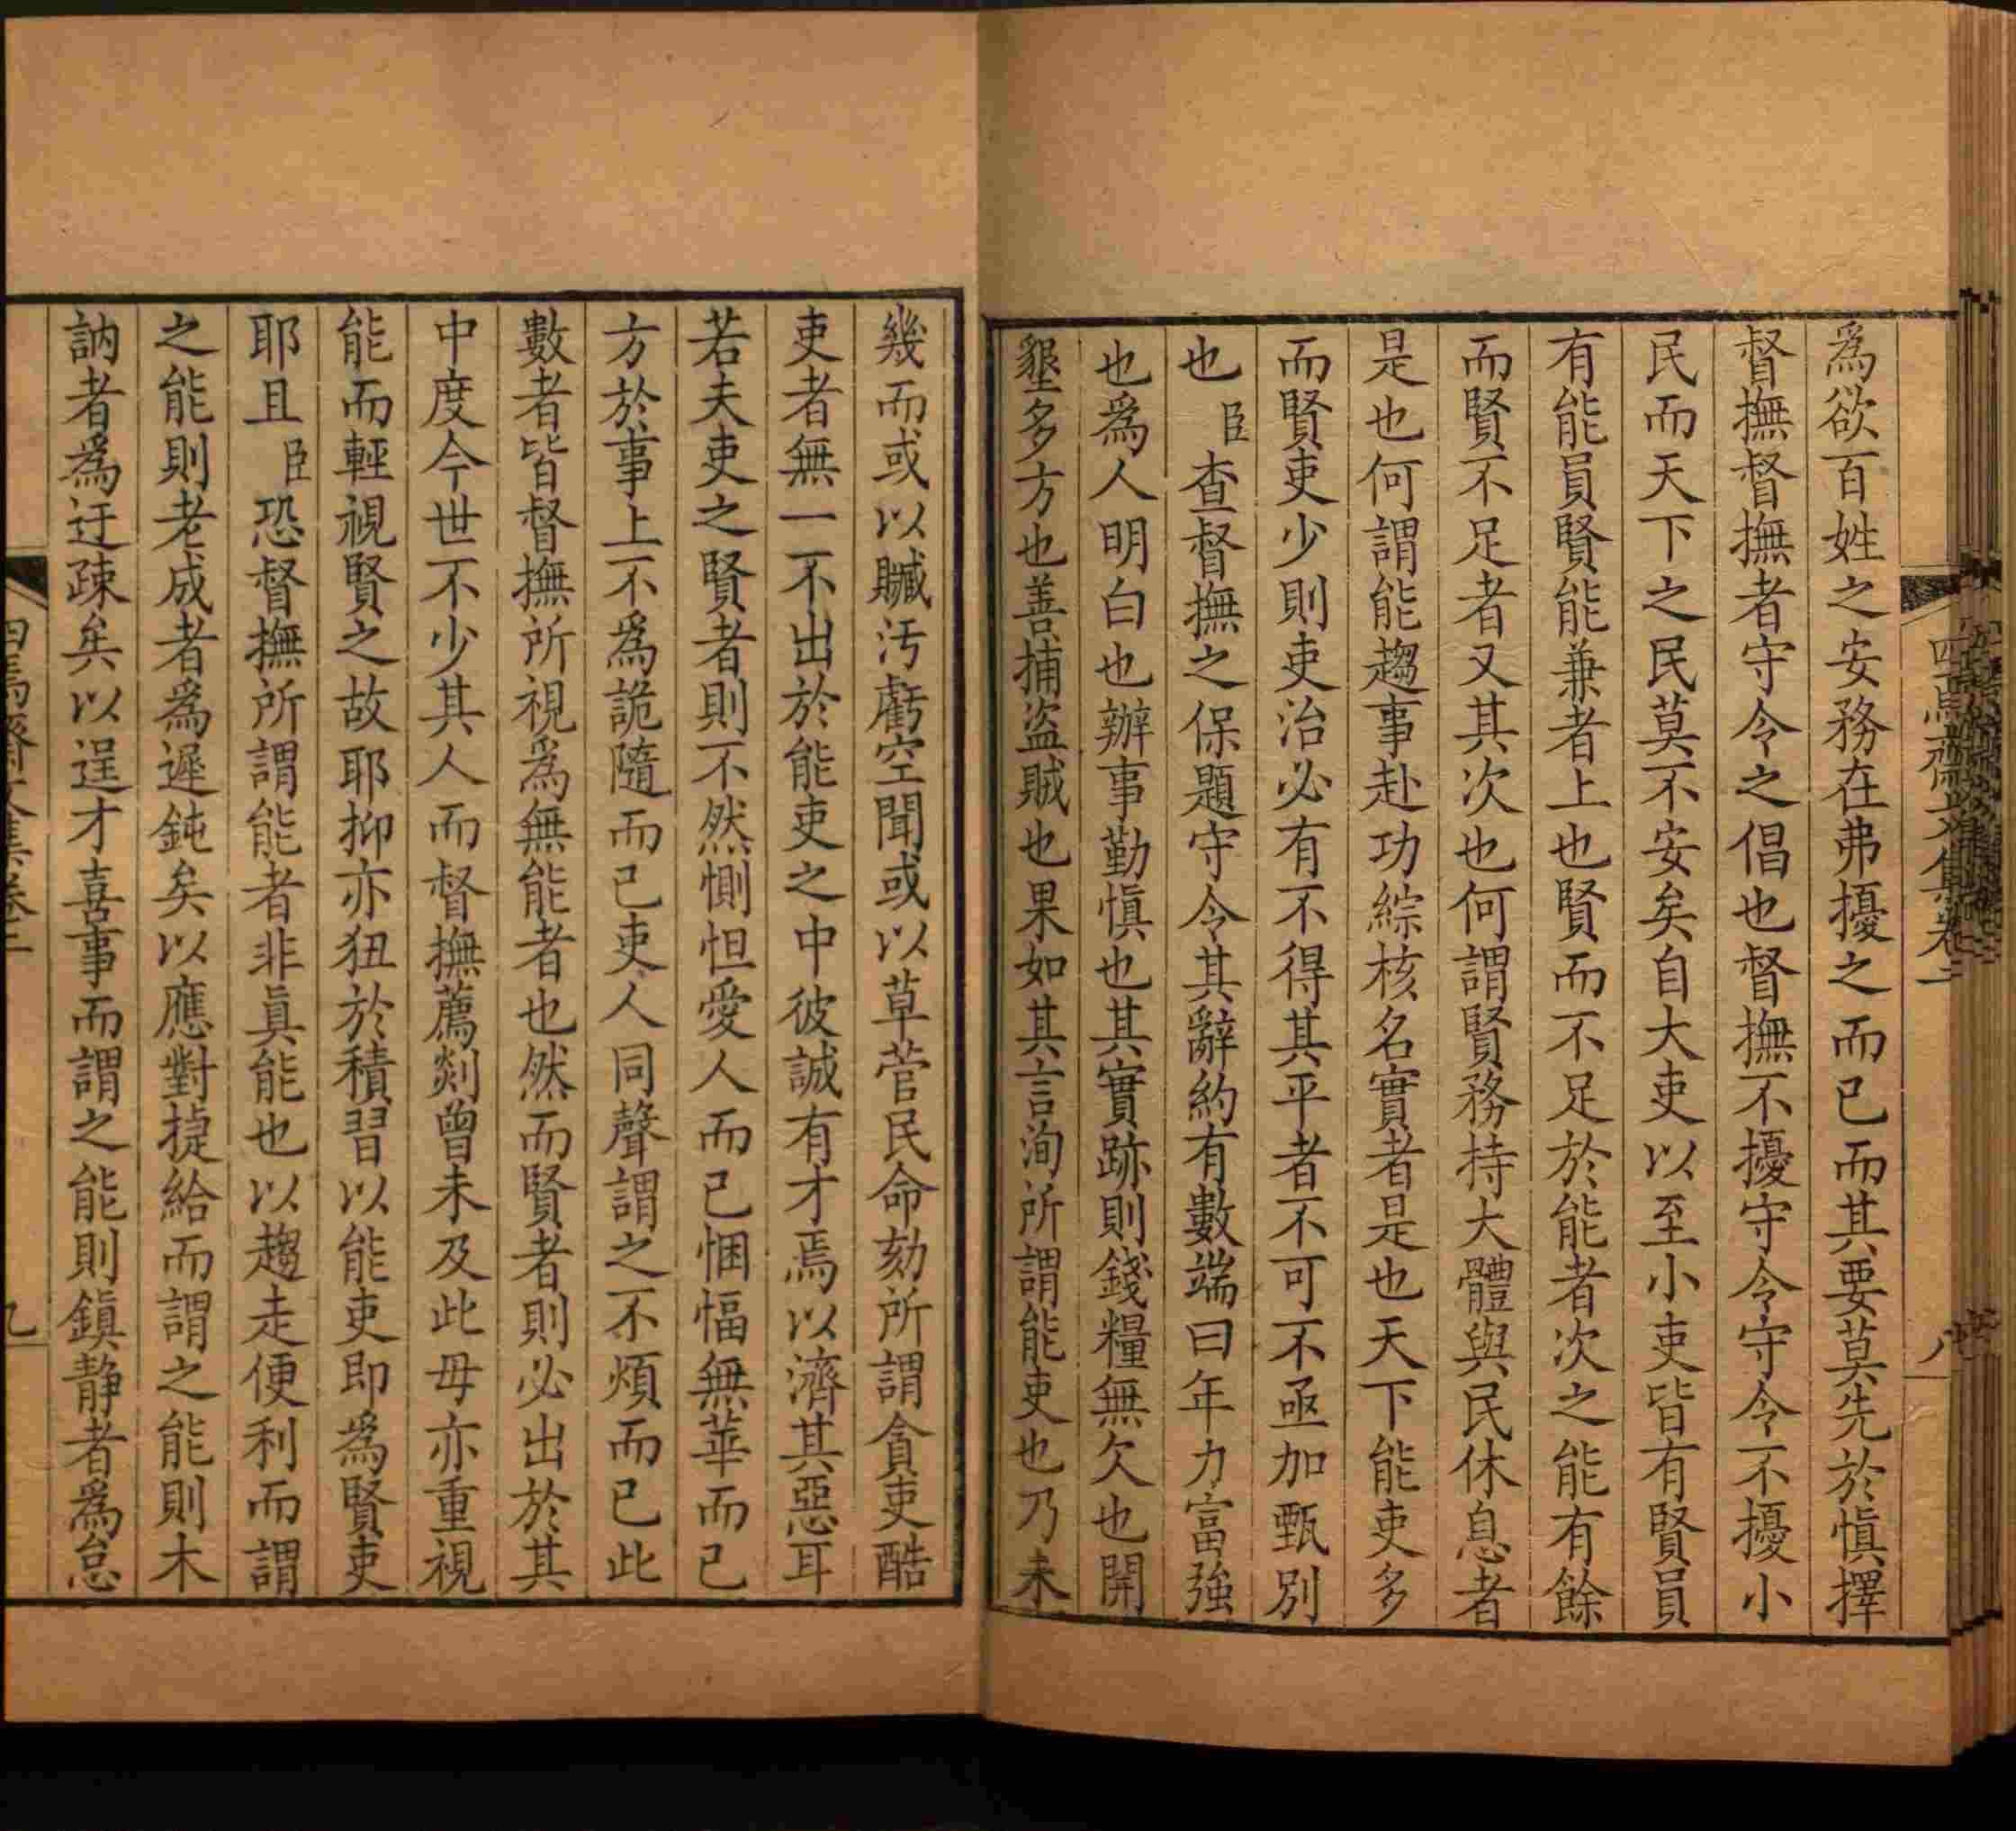 為欲百姓之安務在弗擾之而已而其要莫先於慎擇
督撫督撫者守令之倡也督撫不擾守令守令不擾小
民而天下之民莫不安矣自大吏以至小吏皆有賢員
有能員賢能兼者上也賢而不足於能者次之能有餘
而賢不足者又其次也何謂賢務持大體與民休息者
是也何謂能趨事赴功綜核名實者是也天下能吏多
而賢吏少則吏治必有不得其平者不可不亟加甄別
也臣查督撫之保題守令其辭約有數端曰年力富強
也為人明白也辦事勤慎也其實跡則錢糧無欠也開
墾多方也善捕盜賊也果如其言洵所謂能吏也乃未
幾而或以贓汚虧空聞或以草菅民命劾所謂貪吏酷
吏者無一不出於能吏之中彼誠有才焉以濟其惡耳
若夫吏之賢者則不然惻怛愛人而已悃愊無華而已
方於事上不為詭隨而已吏人同聲謂之不煩而已此
數者皆督撫所視為無能者也然而賢者則必出於其
中度今世不少其人而督撫薦剡曾未及此毋亦重視
能而輕視賢之故耶抑亦狃於積習以能吏即為賢吏
耶且臣恐督撫所謂能者非眞能也以趨走便利而謂
之能則老成者為遲鈍矣以應對捷給而謂之能則木
訥者為迂疎矣以逞才喜事而謂之能則鎭靜者為怠
四焉齋文集卷二
九